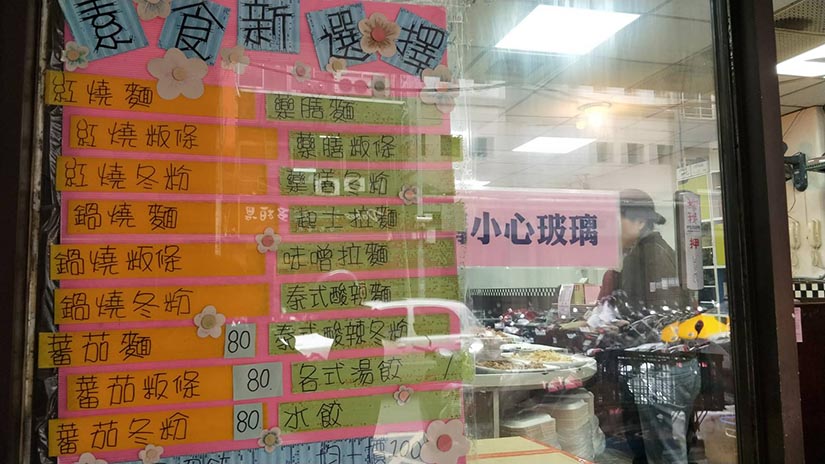 素食新選擇
紅燒麵
紅燒粄條
紅燒冬粉
鍋燒麵
鍋燒粄條
鍋燒冬粉
蕃茄麵 80
蕃茄粄條 80
蕃茄冬粉 80
藥膳麵
藥膳粄條
藥膳冬粉
起士拉麵
味噌拉麵
泰式酸辣麵
泰式酸辣冬粉
各式湯餃
水餃
100
小心玻璃
押